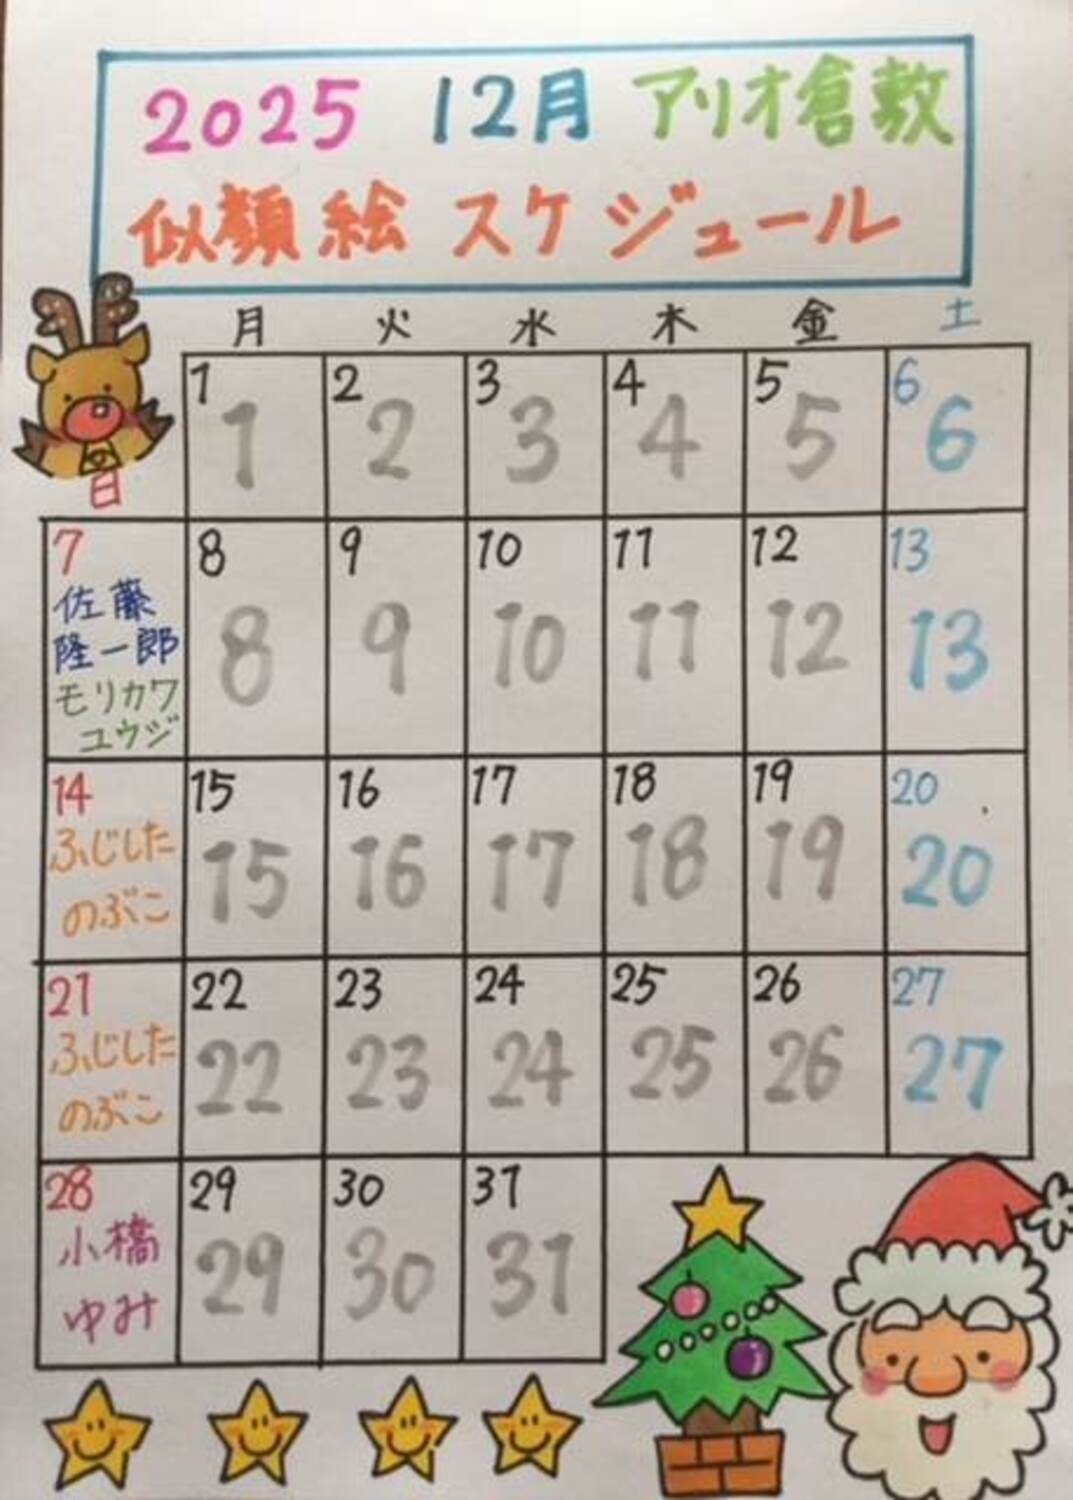 2025 12月 アリオ倉敷
似顔絵 スケジュール
月 火 水 木 金 土
日
1 2 3 4 5 6
1 2 3 4 5 6
7 8 9 10 11 12 13
佐藤
隆一郎
モリカワ
ユウジ
8 9 10 11 12 13
14 15 16 17 18 19 20
ふじした
のぶこ
15 16 17 18 19 20
21 22 23 24 25 26 27
ふじした
のぶこ
22 23 24 25 26 27
28 29 30 31
小橋
ゆみ
29 30 31